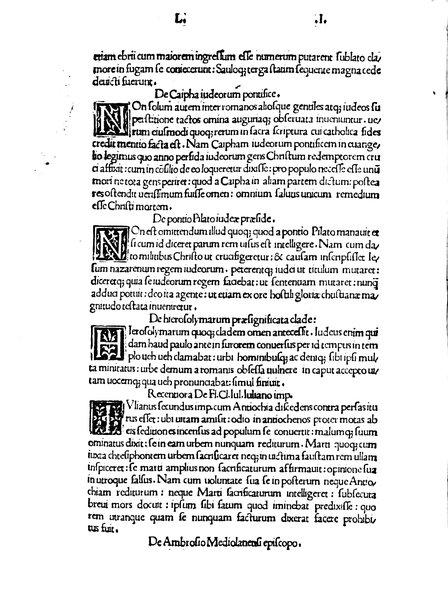 L. .I.
etiam ebrii cum maiorem ingressum esse numerum putarent sublato cla/
more in fugam se coniecerunt: Sauloq; terga statim sequente magna cede
deuicti fuerunt.
De Caipha iudeorum pontifice.
NOn solum autem inter romanos aliosque gentiles atq; iudeos su
perstitione tactos omina auguriaq; obseruata inueniuntur. ue/
rum eiusmodi quoq; rerum in sacra scriptura cui catholica fides
credit mentio facta est. Nam Caipham iudeorum pontificem in euange/
lio legimus quo anno perfida iudeorum gens Christum redemptorem cru
ci affixit: cum in cōsilio de eo loqueretur dixisse: pro populo necesse esse unū
mori ne tota gens periret: quod a Caipha in aliam partem dictum: postea
res ostendit uerissimum fuisse omen: omnium saluus unicum remedium
esse Christi mortem.
De pontio Pilato iudex præside.
NOn est omittendum illud quoq; quod a pontio Pilato manauit et
si cum id diceret parum rem uisus est intelligere. Nam cum da/
to militibus Christo ut crucifigeretur: & causam inscripsisset Ie/
sum nazarenum regem iudeorum. peterentq; iudei ut titulum mutaret:
diceretq; quia se iudeorum regem faciebat: ut sententiam mutaret: nunq
adduci potuit: deo ita agente: ut etiam ex ore hostili gloriæ christianæ ma/
gnitudo testata inueniretur.
De hierosolymarum præsignificata clade:
HIerosolymarum quoq; cladem omen antecessit. Iudeus enim qui
dam haud paulo ante in furorem conuersus per id tempus in tem
plo ueh ueh clamabat: urbi hominibusq; ac deniq; sibi ipsi mul/
ta minatus: urbe demum a romanis obsessa uulnere in caput accepto ui/
tam uocemq; qua ueh pronunciabat: simul finiuit.
Recentiora De Fl. Cl. Iul. Iuliano imp.
IVlianus secundus imp. cum Antiochia discedens contra persas itu
rus esset: ubi uitam amisit: odio in antiochenos propter motas ab
eis seditiones incensus ad populum se conuertit: malumq; suum
ominatus dixit: se in eam urbem nunquam rediturum. Marti quoq; cum
iuxta cthesiphontem urbem sacrificaret neq; in uictima faustam rem ullam
inspiceret: se marti amplius non sacrificaturum affirmauit: opinione sua
in utroque falsus. Nam cum uoluntate sua se in posterum neque Antio/
chiam rediturum: neque Marti sacrificaturum intelligeret: subsecuta
breui mors docuit: ipsum sibi fatum quod iminebat predixisse: quo
rem utranque quam se nunquam facturum dixerat facere prohibi/
tus fuit.
De Ambrosio Mediolanensi episcopo.